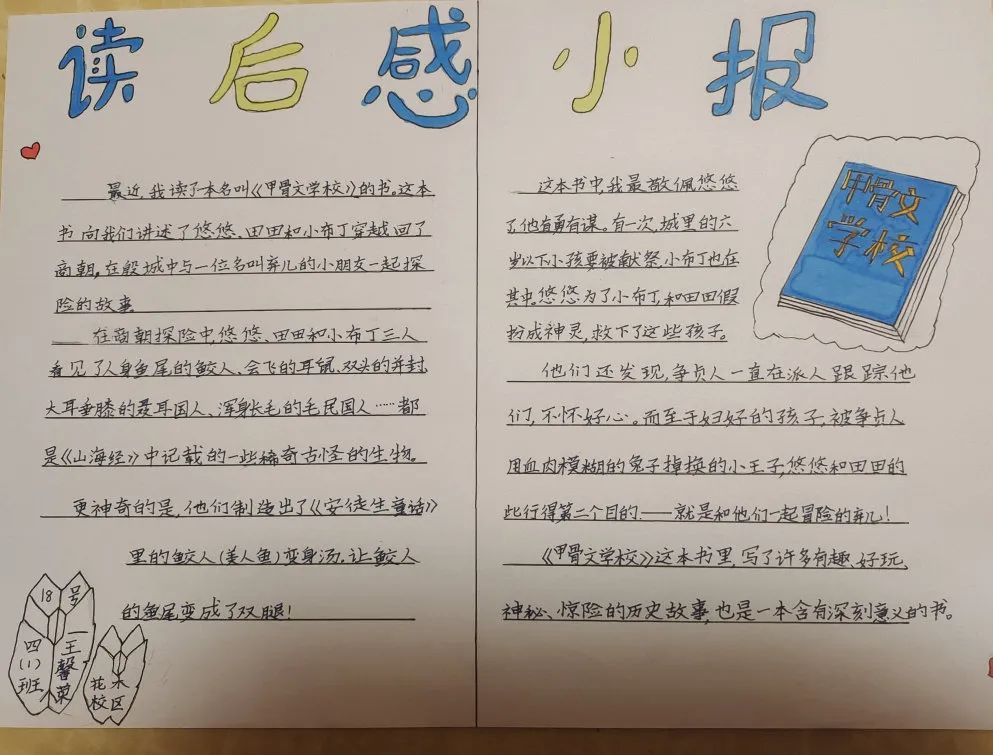 读后感小报
最近,我读了本名叫《甲骨文学校》的书。这本
书向我们讲述了悠悠、田田和小布丁穿越回了
商朝,在殷城中与一位名叫弃儿的小朋友一起探
险的故事
在商朝探险中,悠悠、田田和小布丁三人
看见了人身鱼尾的鲛人、会飞的耳鼠、双头的并封、
大耳垂膝的聂耳国人、浑身长毛的毛民国人……都
是《山海经》中记载的一些稀奇古怪的生物。
更神奇的是,他们制造出了《安徒生童话》
里的鲛人(美人鱼)变身汤。让鲛人
的鱼尾变成了双腿!
18号
四(1)班
王馨
花木校区
甲骨文
学校
这本书中,我最敬佩悠悠
了他有勇有谋。有一次,城里的六
岁以下小孩要被献祭,小布丁也在
其中。悠悠为了小布丁,和田田假
扮成神灵,救下了这些孩子。
他们还发现,争贞人一直在派人跟踪他
们,不怀好心。而至于妇好的孩子,被争贞人
用血肉模糊的兔子掉换的小王子,悠悠和田田的
此行得第二个目的——就是和他们一起冒险的弃儿!
《甲骨文学校》这本书里,写了许多有趣、好玩、
神秘、惊险的历史故事,也是一本含有深刻意义的书。